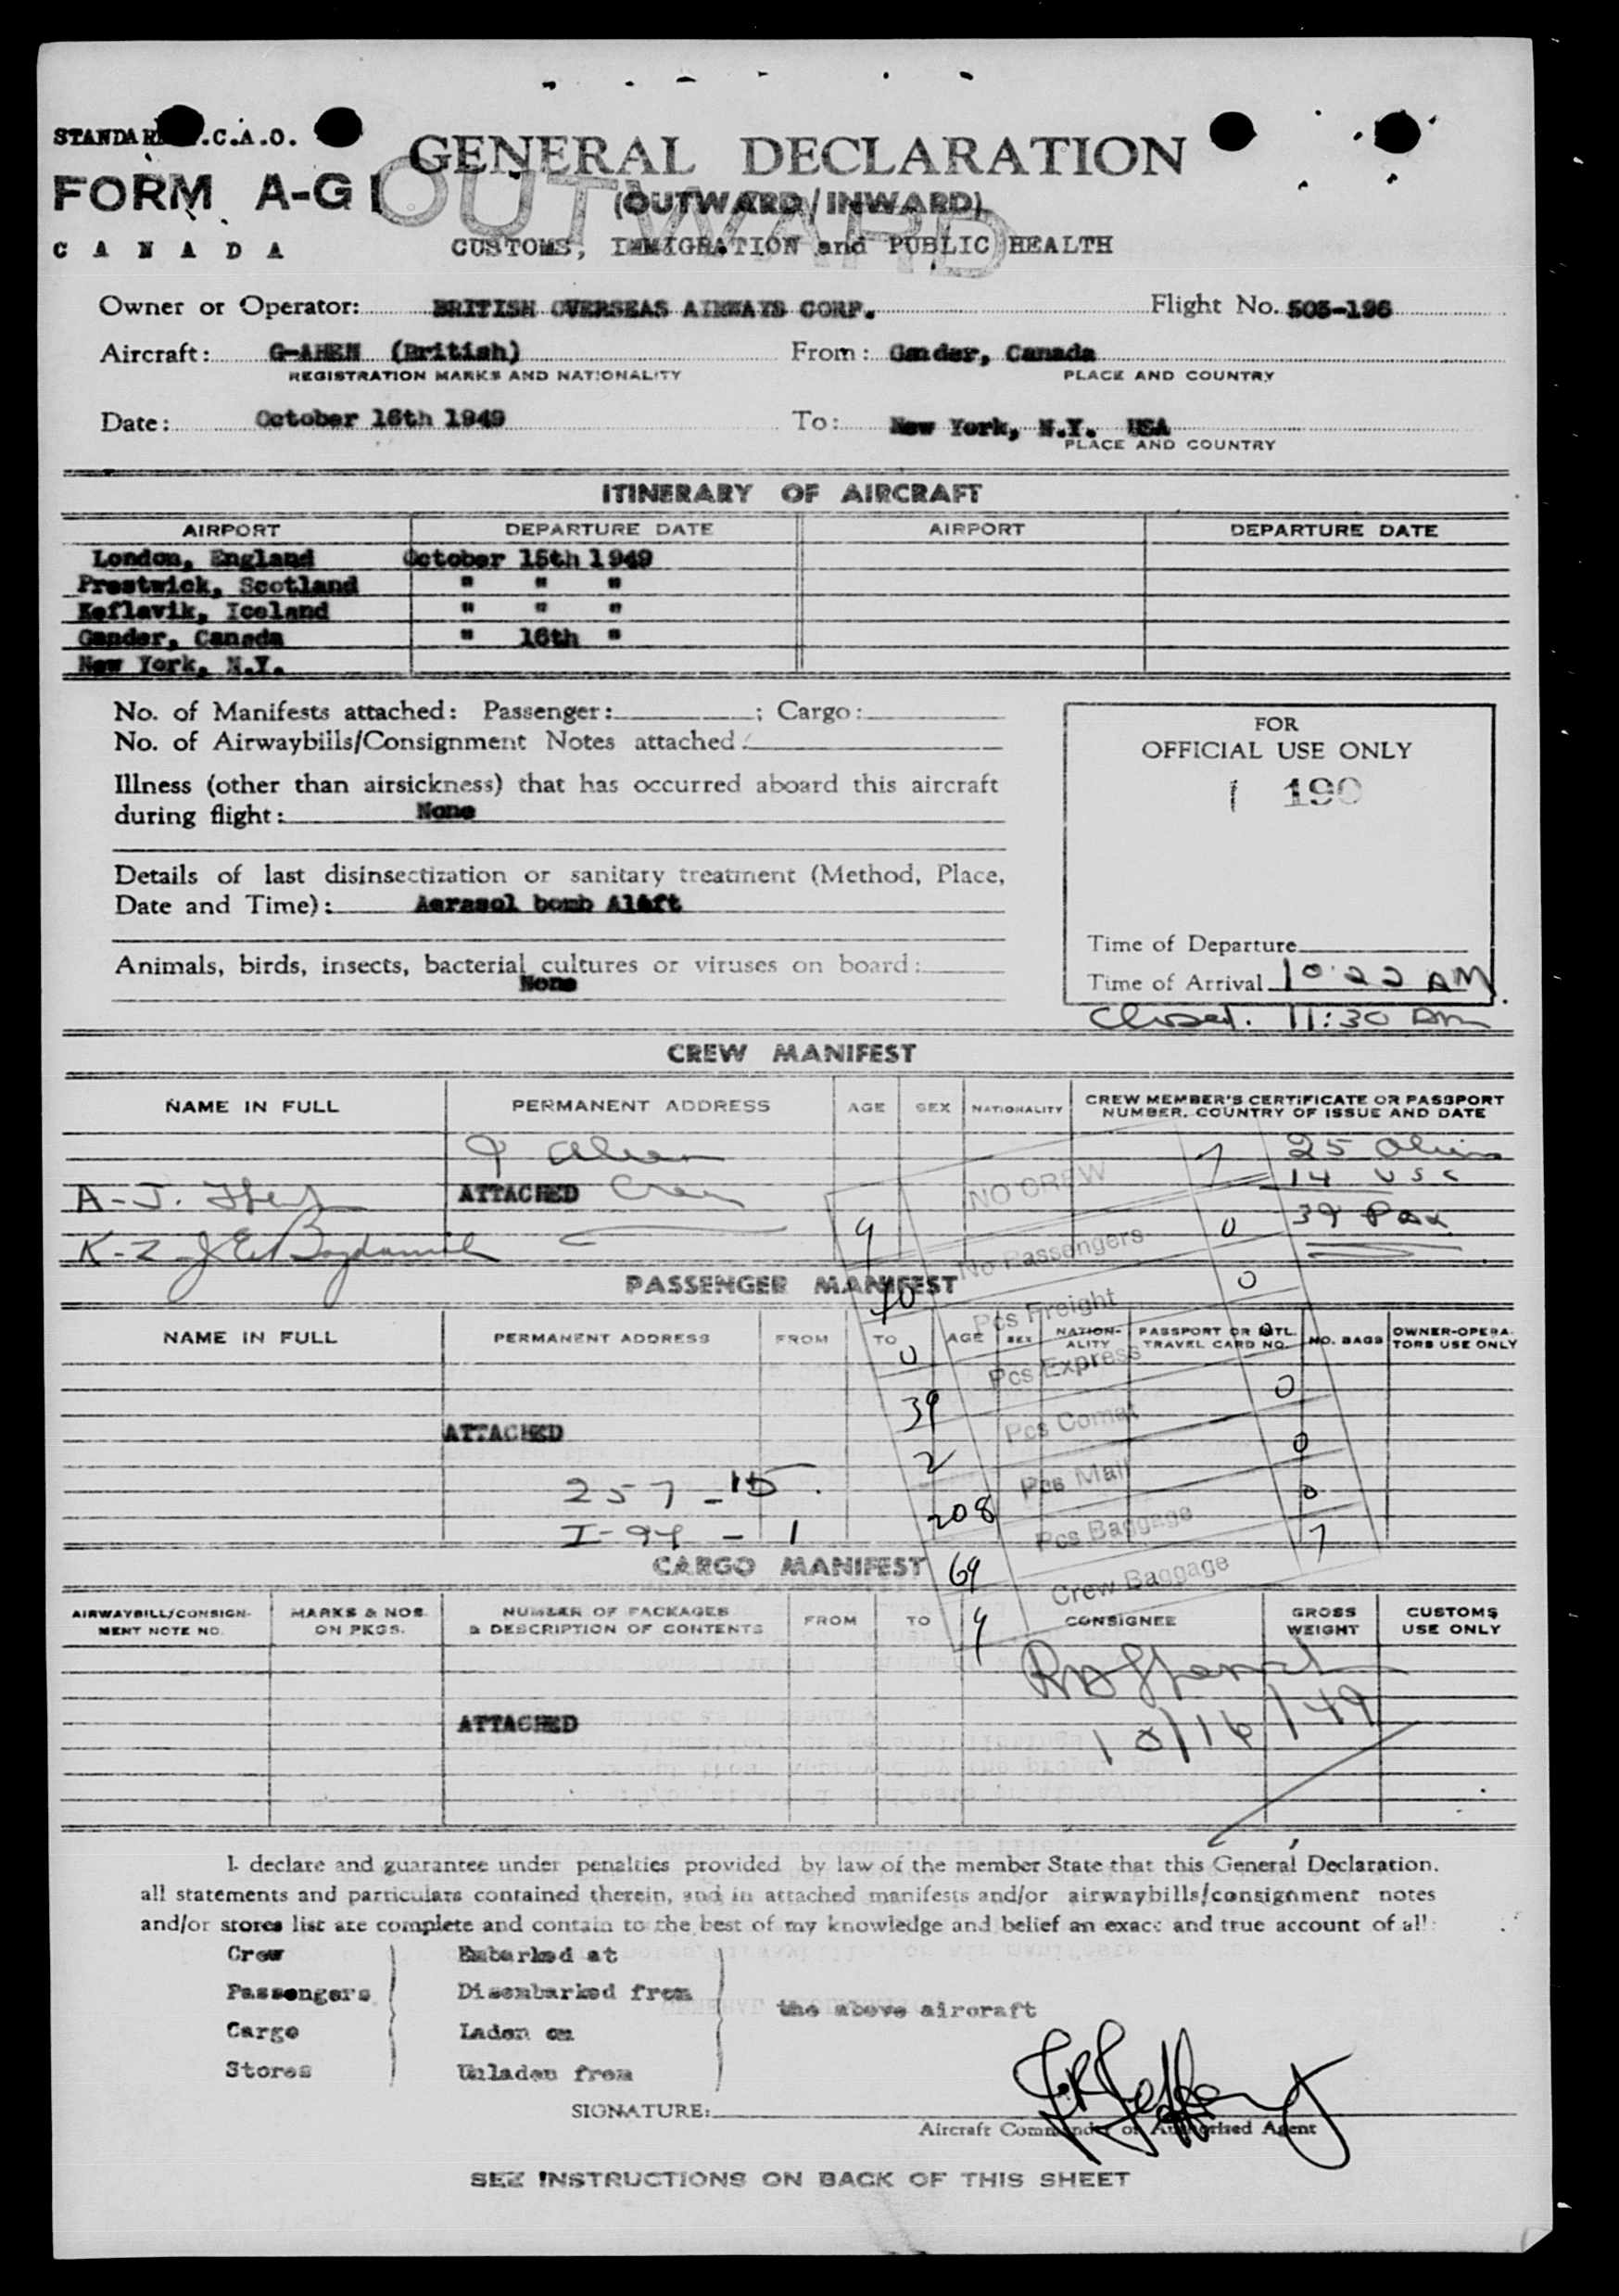 STANDARD I.C.A.O.
FORM A-G 1
CANADA
GENERAL DECLARATION
OUTWARD
(OUTWARD/INWARD)
CUSTOMS, IMMIGRATION and PUBLIC HEALTH
Owner or Operator: BRITISH OVERSEAS AIRWAYS CORP. Flight No. 503-196
Aircraft: G-AHEN (British) From: Gander, Canada
REGISTRATION MARKS AND NATIONALITY PLACE AND COUNTRY
Date: October 16th 1949 To: New York, N.Y. USA
PLACE AND COUNTRY
ITINERARY OF AIRCRAFT
AIRPORT DEPARTURE DATE AIRPORT DEPARTURE DATE
London, England October 15th 1949
Prestwick, Scotland " " "
Keflavik, Iceland " " "
Gander, Canada " 16th "
New York, N.Y.
No. of Manifests attached: Passenger: ; Cargo:
No. of Airwaybills/Consignment Notes attached:
Illness (other than airsickness) that has occurred aboard this aircraft
during flight: None
Details of last disinsectization or sanitary treatment (Method, Place,
Date and Time): Aerasol bomb Aloft
Animals, birds, insects, bacterial cultures or viruses on board:
None
FOR
OFFICIAL USE ONLY
190
Time of Departure
Time of Arrival 10:22 AM
Closed. 11:30 Am
CREW MANIFEST
NAME IN FULL PERMANENT ADDRESS AGE SEX NATIONALITY CREW MEMBER'S CERTIFICATE OR PASSPORT NUMBER, COUNTRY OF ISSUE AND DATE
9 Alien 25 Aliens
ATTACHED Crew 14 USC
39 Pax
A-J.
K-Z
9 NO CREW 7
10 No Passengers 0
0 Pcs Freight 0
39 Pcs Express 0
2 Pcs Comat 0
208 Pcs Mail 0
69 Pcs Baggage 0
9 Crew Baggage 7
PASSENGER MANIFEST
NAME IN FULL PERMANENT ADDRESS FROM TO AGE SEX NATIONALITY PASSPORT OR INTL. TRAVEL CARD NO. NO. BAGS OWNER-OPERATORS USE ONLY
ATTACHED
257 - 15.
I-94 - 1
CARGO MANIFEST
AIRWAYBILL/CONSIGNMENT NOTE NO. MARKS & NOS. ON PKGS. NUMBER OF PACKAGES & DESCRIPTION OF CONTENTS FROM TO CONSIGNEE GROSS WEIGHT CUSTOMS USE ONLY
ATTACHED
10/16/49
I declare and guarantee under penalties provided by law of the member State that this General Declaration.
all statements and particulars contained therein, and in attached manifests and/or airwaybills/consignment notes
and/or stores list are complete and contain to the best of my knowledge and belief an exact and true account of all:
Crew Embarked at
Passengers Disembarked from
the above aircraft
Cargo Laden on
Stores Unladen from
SIGNATURE:
Aircraft Commander or Authorised Agent
SEE INSTRUCTIONS ON BACK OF THIS SHEET